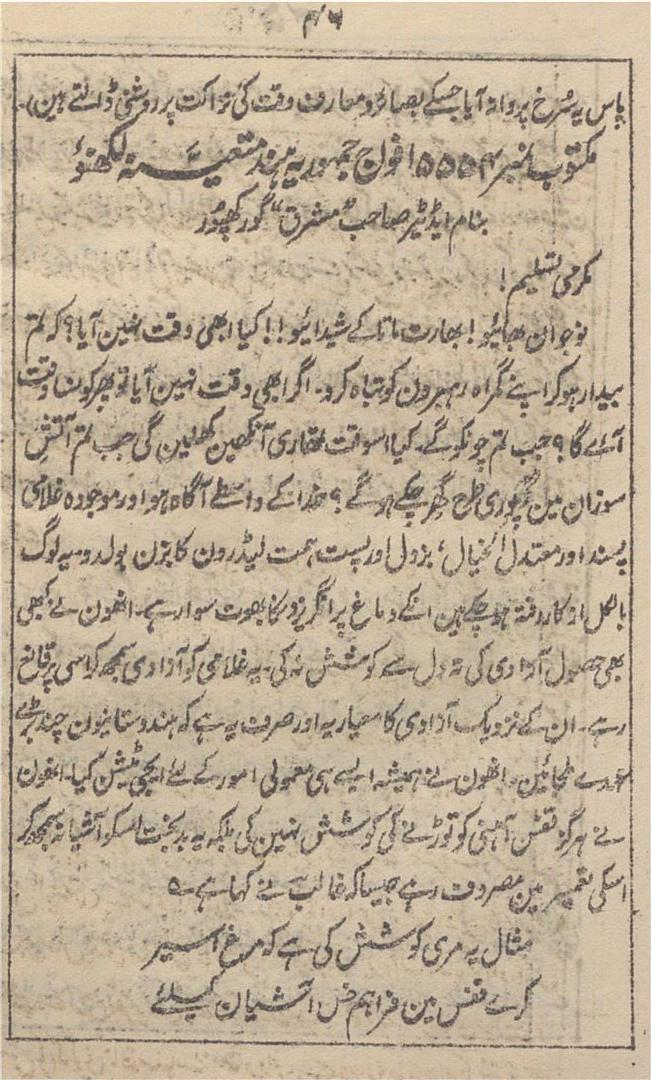 ۴۶
پاس یہ سُرخ پروانہ آیا جسکے بصائر و معارف وقت کی نزاکت پر روشنی ڈالتے ہین)۔
مکتوب نمبر ۵۵۵۴ افواج جمہوریہ ہند متعینہ لکھنؤ
بنام ایڈیٹر صاحب "مشرق" گورکھپُور
مکرمی تسلیم!
نوجوان بھائیو! بھارت ماتا کے شیدائیو!! کیا ابھی وقت نہین آیا؟ کہ تم
بیدار ہوکر اپنے گمراہ رہبرون کو تباہ کرو۔ اگر ابھی وقت نہین آیا تو پھر کونسا وقت
آئے گا؟ جب تم چونکو گے۔ کیا اسوقت تمھاری آنکھین کھلین گی جب تم آتش
سوزان مین پُوری طرح گھر چکے ہو گے؟ خدا کے واسطے آگاہ ہو اور موجودہ غلامی
پسند اور معتدل الخیال، بزدل اور پست ہمت لیڈرون کا بزن بولدو۔ یہ لوگ
بالکل از کار رفتہ ہو چکے ہین انکے دماغ پر انگریزو نکا بھوت سوار ہے۔ انھون نے کبھی
بھی حصول آزادی کی تہ دل سے کوشش نہ کی۔ یہ غلامی کو آزادی سمجھ کر اسی پر قانع
رہے۔ ان کے نزدیک آزادی کا معیار یہ اور صرف یہ ہے کہ ہندوستانیون چند بڑے
عہدے ملجائین۔ انھون نے ہمیشہ ایسے ہی معمولی امور کے لئے ایجی ٹیشن کیا۔ انھون
نے ہرگز قفس آہنی کو توڑنے کی کوشش نہین کی بلکہ یہ بدبخت اسکو آشیانہ سمجھ کر
اسکی تعمیر مین مصروف رہے جیسا کہ غالب نے کہا ہے ؎
مثال یہ مری کوشش کی ہے کہ مرغ اسیر
کرے قفس مین فراہم خس آشیان کیلئے